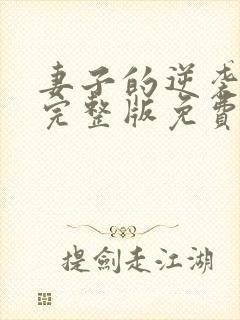 妻子的逆袭
完整版免費
提劍走江湖